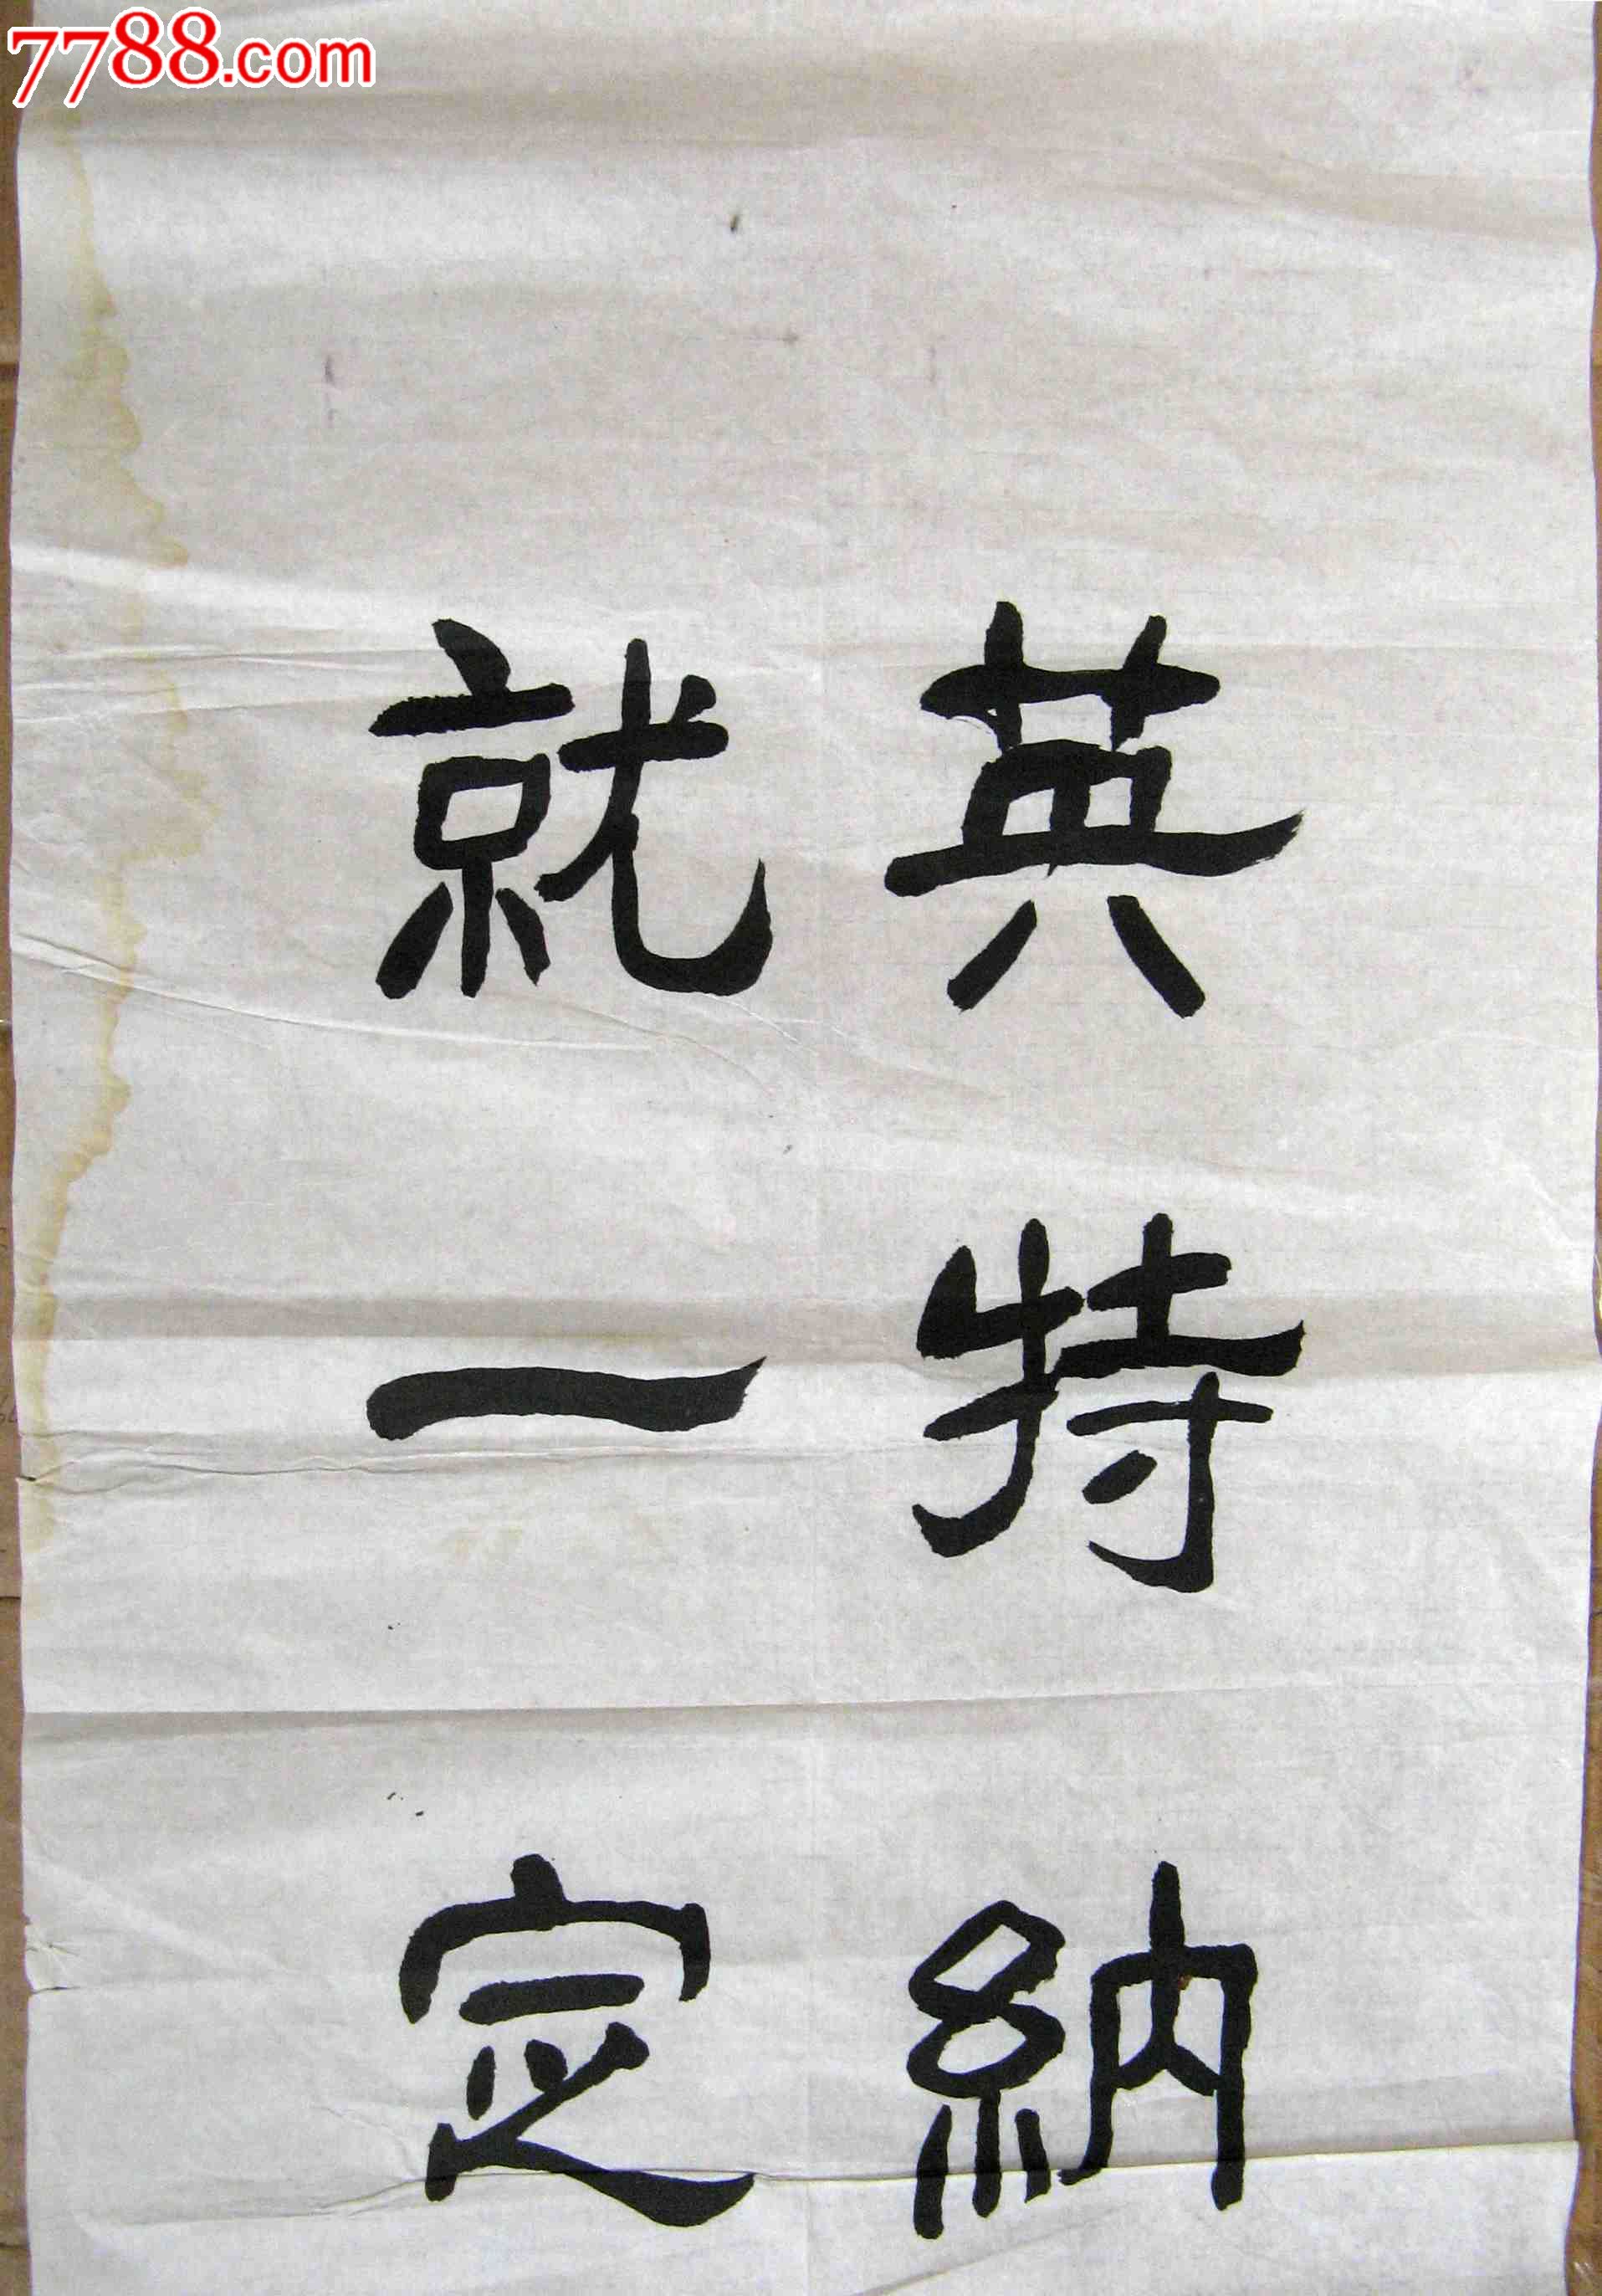 7788.com
英特納
就一定